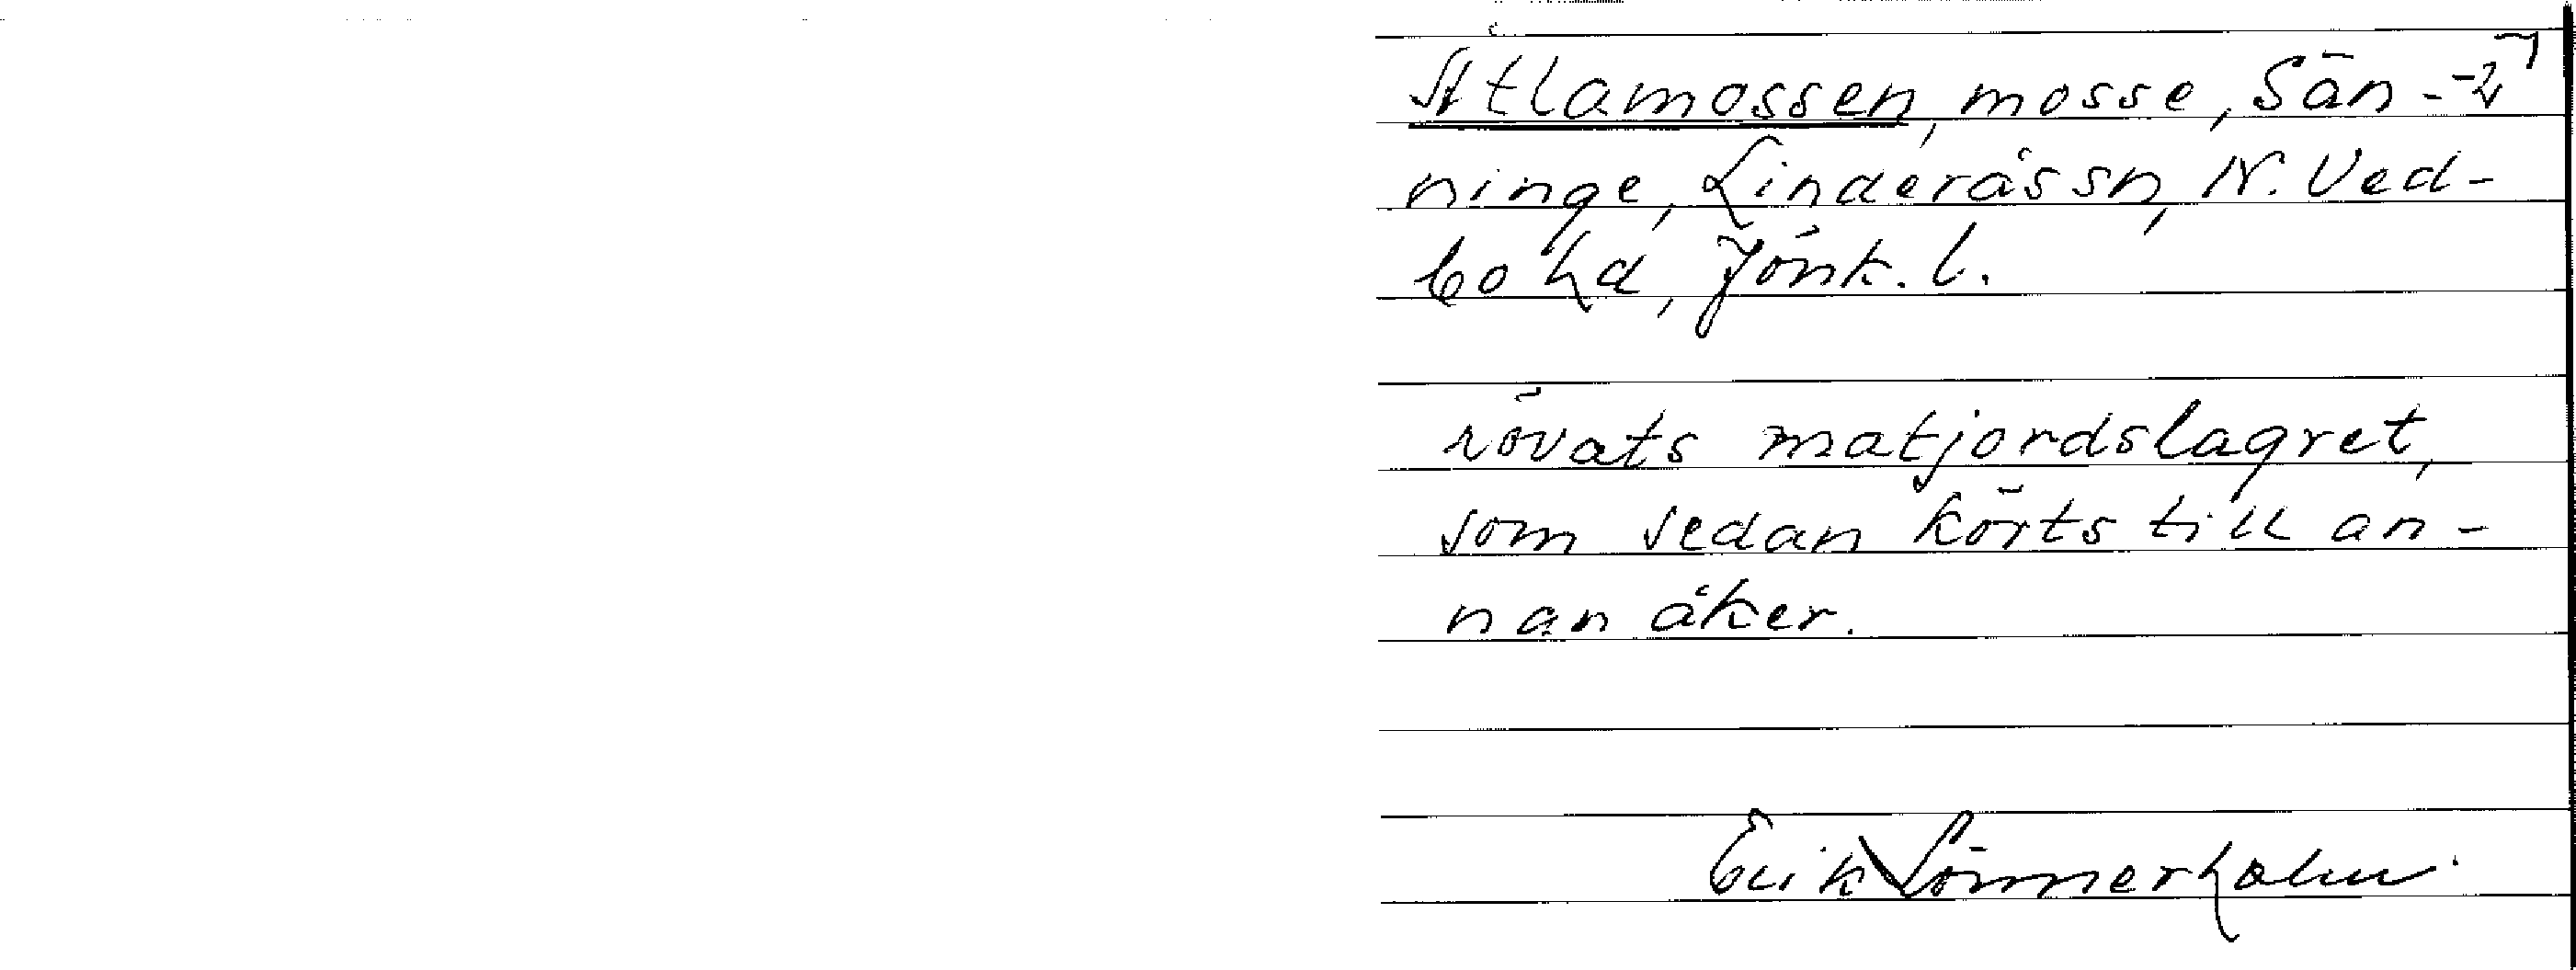 Åtlamossen, mosse, Sän- -2⁊
ninge, Linderås sn, N. Ved-
bo hd, Jönk. l.
rövats matjordslagret,
som sedan körts till an-
nan åker.
Erik Lönnerholm.